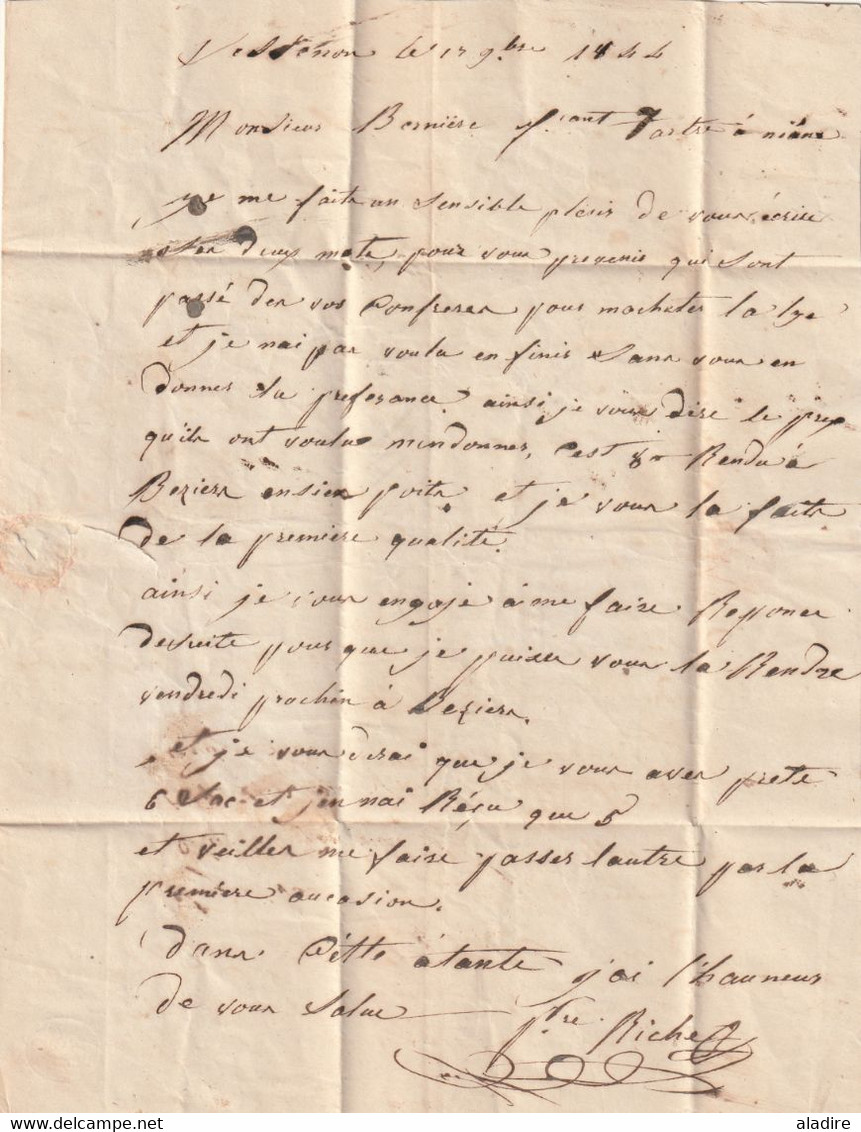 le 17 9bre 1844
Monsieur Bernière f.cant Tartre à
je me faits un sensible plesir de vous écrire
deux mots, pour vous prevenir qui sont
passé des vos Confreres pour machater la lye
et je nai pas voulu en finir sans vous en
donner la preferance. ainsi je vous dire le prix
quils ont voulu mendonner, cest 8 Rendu à
Beziers ensien poits. et je vous la faits
de la première qualité.
ainsi je vous engaje à me faire Reponce
desuite pour que je puises vous la Rendre
vendredi prochin à Beziers.
et je vous dirai que je vous aves prete
6 Sac et jen nai Réçu que 5
et veiller me faire passer lautre par la
premiere aucasion.
dans Cétte átante j'ai l'hauneur
de vous Salue
Pre. Riche
aladire